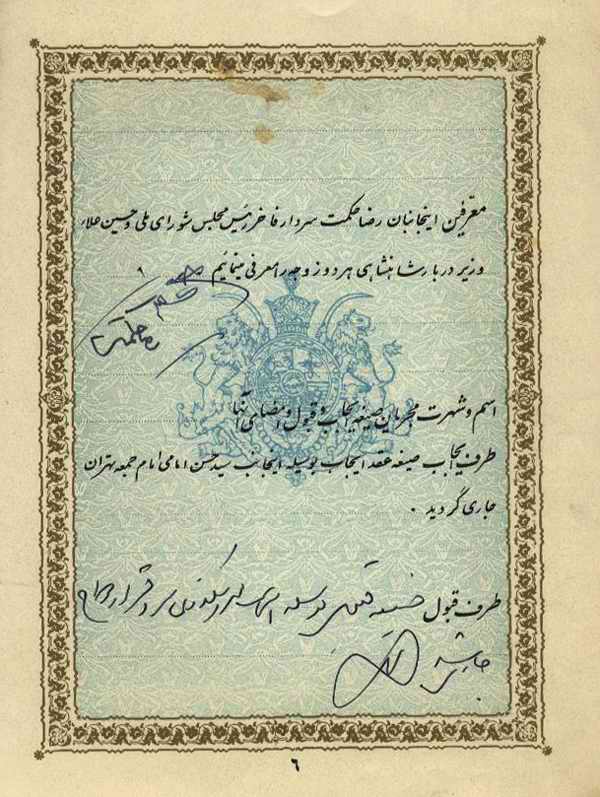 معرفین اینجانبان رضا حکمت سردار فاخر رئیس مجلس شورای ملی و حسین علاء
وزیر دربار شاهنشاهی هر دو زوجه را معرفی مینمائیم
رضا حکمت
اسم و شهرت مجریان صیغه ایجاب و قبول و امضای آنها
طرف ایجاب صیغه عقد ایجاب بوسیله اینجانب سید حسن امامی امام جمعه تهران
جاری گردید .
طرف قبول صیغه قبول بوسیله
جاری شد
۶